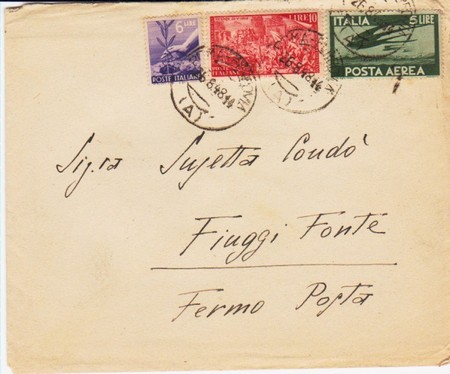 6 LIRE
POSTE ITALIANE
LIRE 10
ITALIA 5 LIRE
POSTA AEREA
26.8.48.14
(A)
(A)
Sig.ra Sujetta Condò
Fiuggi Fonte
Fermo Posta